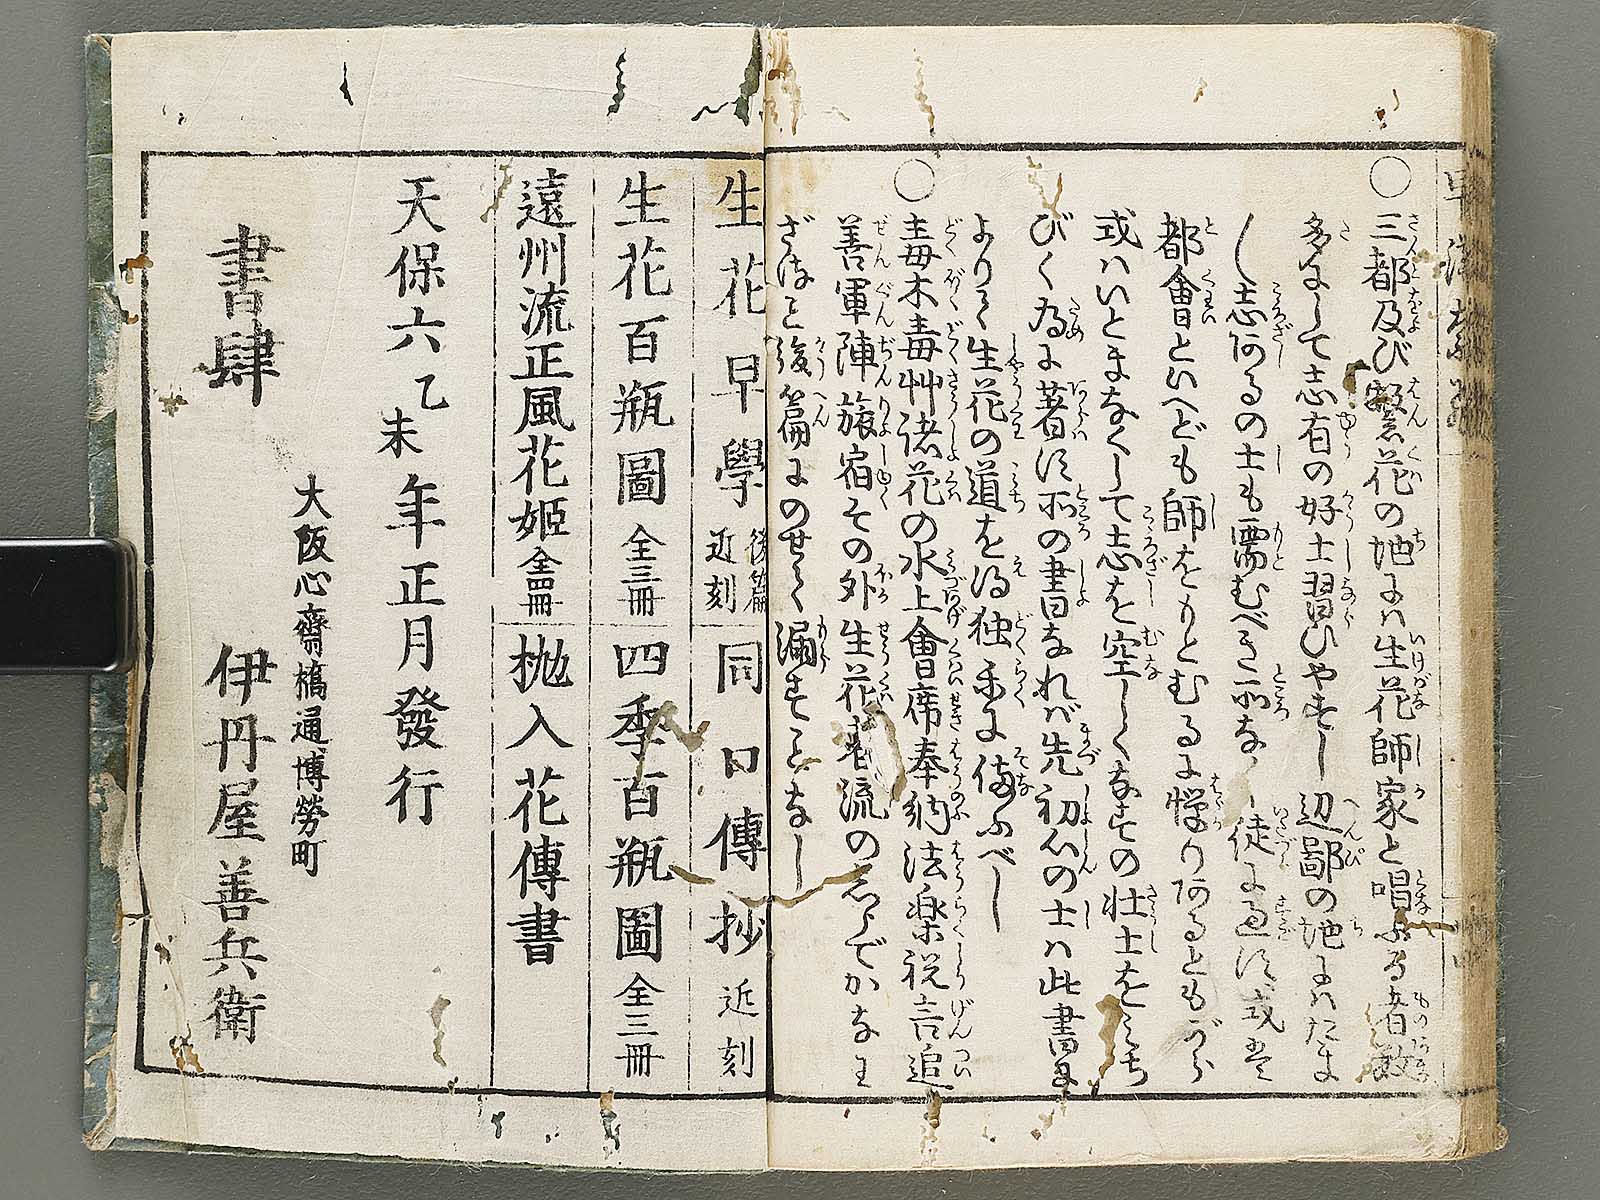 〇三都及び繁花の地には生花師家と唱ふる者数
多にして志有の好士習ひやすし辺鄙の地にはたま
〳〵志あるの士も需むべき所なく徒に過す或は
都會といへども師をもとむるに憚りあるともがら
或はいとまなくして志を空しくなすの壮士をみち
びく為に著す所の書なれば先初心の士は此書に
よりて生花の道を得独楽に備ふべし
〇毒木毒艸諸花の水上會席奉納法楽祝言追
善軍陣旅宿その外生花老流の
ざるを後篇にのせて漏すことなし
生花早學 後篇近刻
同口傳抄 近刻
生花百瓶圖 全三冊
四季百瓶圖 全三冊
遠州流正風花姫 全四冊
抛入花傳書
天保六乙未年正月發行
大阪心齋橋通博勞町
書肆 伊丹屋善兵衛